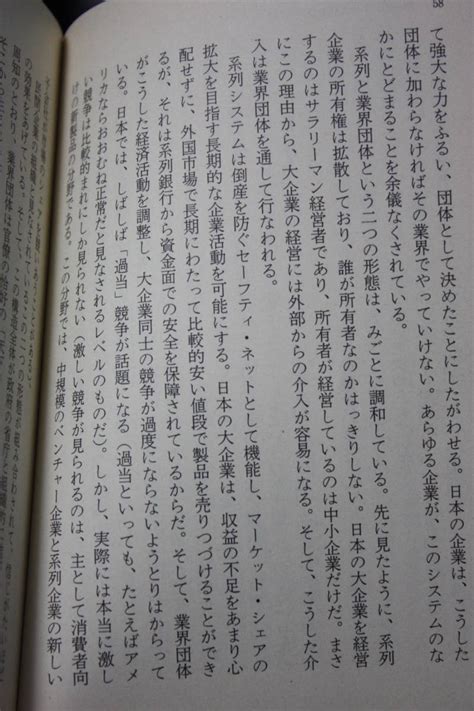 58
て強大な力をふるい、団体として決めたことにしたがわせる。日本の企業は、
団体に加わらなければその業界でやっていけない。あらゆる企業が、このシステムのな
かにとどまることを余儀なくされている。
系列と業界団体という二つの形態は、みごとに調和している。先に見たように、系列
企業の所有権は拡散しており、誰が所有者なのかはっきりしない。日本の大企業を経営
するのはサラリーマン経営者であり、所有者が経営しているのは中小企業だけだ。まさ
にこの理由から、大企業の経営には外部からの介入が容易になる。そして、こうした介
入は業界団体を通して行なわれる。
系列システムは倒産を防ぐセーフティ・ネットとして機能し、マーケット・シェアの
拡大を目指す長期的な企業活動を可能にする。日本の大企業は、収益の不足をあまり心
配せずに、外国市場で長期にわたって比較的安い値段で製品を売りつづけることができ
るが、それは系列銀行から資金面での安全を保障されているからだ。そして、業界団体
がこうした経済活動を調整し、大企業同士の競争が過度にならないようとりはからって
いる。日本では、しばしば「過当」競争が話題になる（過当といっても、たとえばアメ
リカならおおむね正常だと見なされるレベルのものだ）。しかし、実際には本当に激し
い競争は比較的まれにしか見られない（激しい競争が見られるのは、主として消費者向
けの新製品の分野である。この分野では、中規模のベンチャー企業と系列企業の新しい